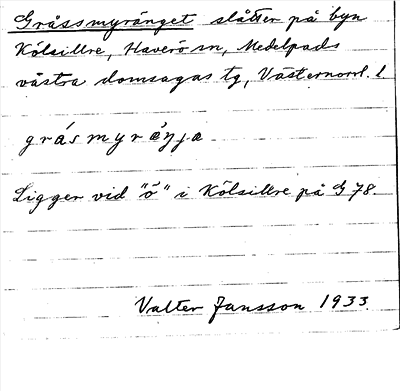 Gråssmyränget slåtter på byn
Kölsillre, Haverö sn, Medelpads
västra domsagas tg, Västernorrl. l
grásmyræŋja
Ligger vid "ö" i Kölsillre på G 78.
Valter Jansson 1933.